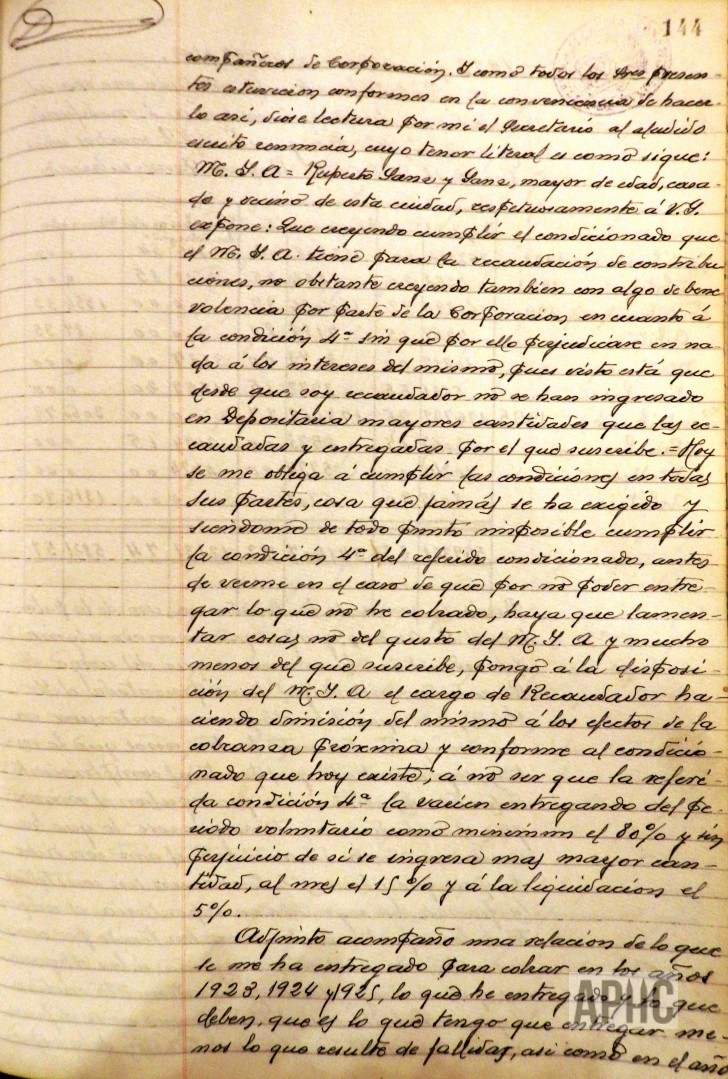 144
compañeros de Corporación. Y como todos los Sres presen-
tes estuvieron conformes en la conveniencia de hacer-
lo así, dióse lectura por mi el Secretario al aludido
escrito renuncia, cuyo tenor literal es como sigue:
M. Y. A = Ruperto Sanz y Sanz, mayor de edad, casa-
do y vecino de esta ciudad, respetuosamente á V. Y.
expone: Que creyendo cumplir el condicionado que
el M. Y. A. tiene para la recaudación de contribu
ciones, no obstante creyendo tambien con algo de bene
volencia por parte de la Corporacion en cuanto á
la condición 4ª sin que por ello perjudicase en na-
da á los intereses del mismo, pues visto está que
desde que soy recaudador no se han ingresado
en Depositaria mayores cantidades que las re-
caudadas y entregadas por el que suscribe. = Hoy
se me obliga á cumplir las condiciones en todas
sus partes, cosa que jamás se ha exigido y
siendome de todo punto imposible cumplir
la condición 4ª del referido condicionado, antes
de verme en el caso de que por no poder entre-
gar lo que no he cobrado, haya que lamen-
tar cosas no del gusto del M. Y. A y mucho
menos del que suscribe, pongo á la disposi-
ción del M. Y. A el cargo de Recaudador ha-
ciendo dimisión del mismo á los efectos de la
cobranza próxima y conforme al condicio-
nado que hoy existe; á no ser que la referi-
da condición 4ª la varien entregando del pe-
riodo voluntario como minimun el 80% y sin
perjuicio de si se ingresa mas mayor can-
tidad, al mes el 15% y á la liquidacion el
5%.
Adjunto acompaño una relacion de lo que
se me ha entregado para cobrar en los años
1923, 1924 y 1925, lo que he entregado y lo que
deben, que es lo que tengo que entregar me-
nos lo que resulte de fallidas, asi como en el año
APHC